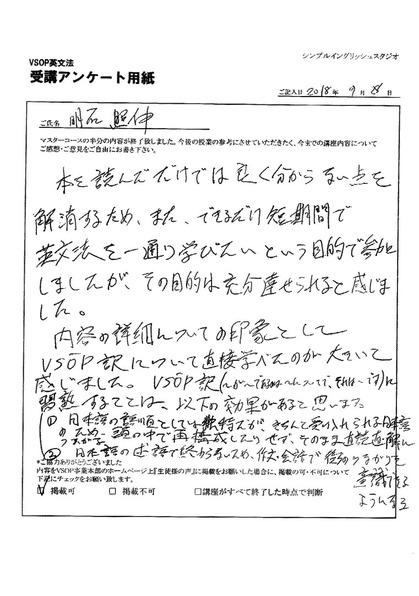 シンプルイングリッシュスタジオ
VSOP英文法
受講アンケート用紙
ご記入日 2018年 9月 28日
ご氏名 明石 照伸
マスターコースの半分の内容が終了致しました。今後の授業の参考にさせていただきたく、今までの講座内容について
ご感想・ご意見をご自由にお書き下さい。
本を読んだだけでは良く分からない点を
解消するため、また、できるだけ短期間で
英文法を一通り学びたいという目的で参加
しましたが、その目的は充分達せられると感じま
した。
内容の詳細についての印象として
VSOP訳について直接学べたのが大きいと
感じました。VSOP訳
習熟することは、以下の効果があると思います。
① 日本語の語順としては
のため、頭の中で再構成したりせず、そのまま直読直解に
② 日本語の述語で終わらないため、作文・会話で後ろのつながりを
意識する
ようになる
*ご協力ありがとうございました
内容をVSOP事業本部のホームページ上『生徒様の声』に掲載をお願いした場合に、掲載の可・不可について
下記にチェックをお願い致します。
☑ 掲載可 □掲載不可 □講座がすべて終了した時点で判断